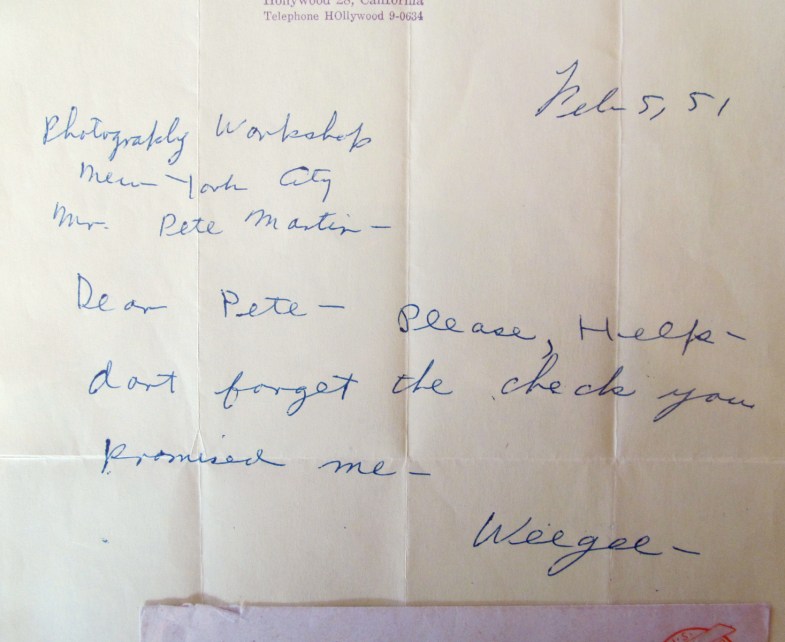 Hollywood 28, California
Telephone HOllywood 9-0634
Feb 5, 51
Photography Workshop
New York City
Mr. Pete Martin –
Dear Pete – Please, Help –
dont forget the check you
promised me –
Weegee –